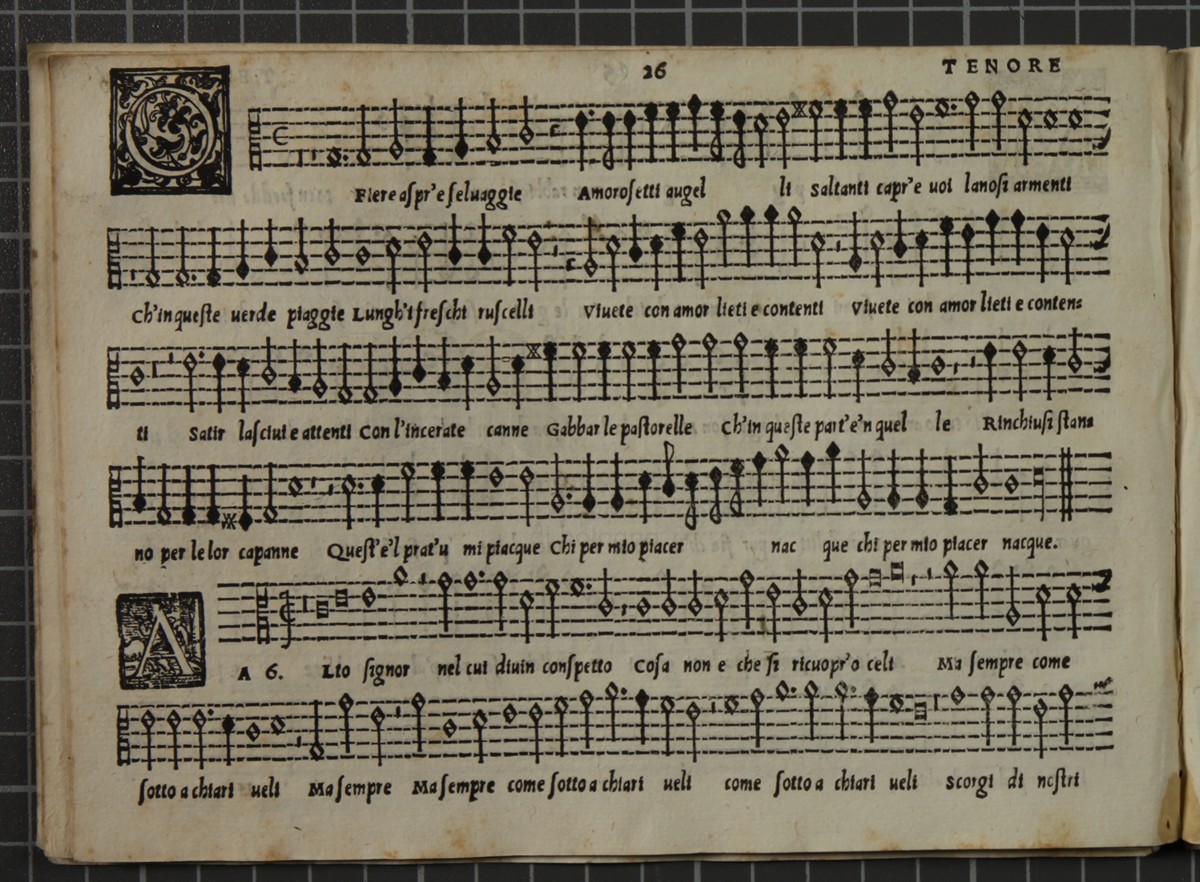 26
TENORE
O
Fiere aſpr'e ſeluaggie Amoroſetti augel li Saltanti capr'e uoi lanoſi armenti
Ch'in queſte uerde piaggie Lungh'i freſchi ruſcelli Viuete con amor lieti e contenti Viuete con amor lieti e conten=
ti Satir laſciui e attenti Con l'incerate canne Gabbar le paſtorelle Ch'in queſte part'e'n quel le Rinchiuſi ſtan=
no per le lor capanne Queſt'e'l prat'u mi piacque Chi per mio piacer nac que chi per mio piacer nacque.
A
A 6. Lto ſignor nel cui diuin conſpetto Coſa non e che ſi ricuopr'o celi Ma ſempre come
ſotto a chiari ueli Ma ſempre Ma ſempre come ſotto a chiari ueli come ſotto a chiari ueli Scorgi di noſtri